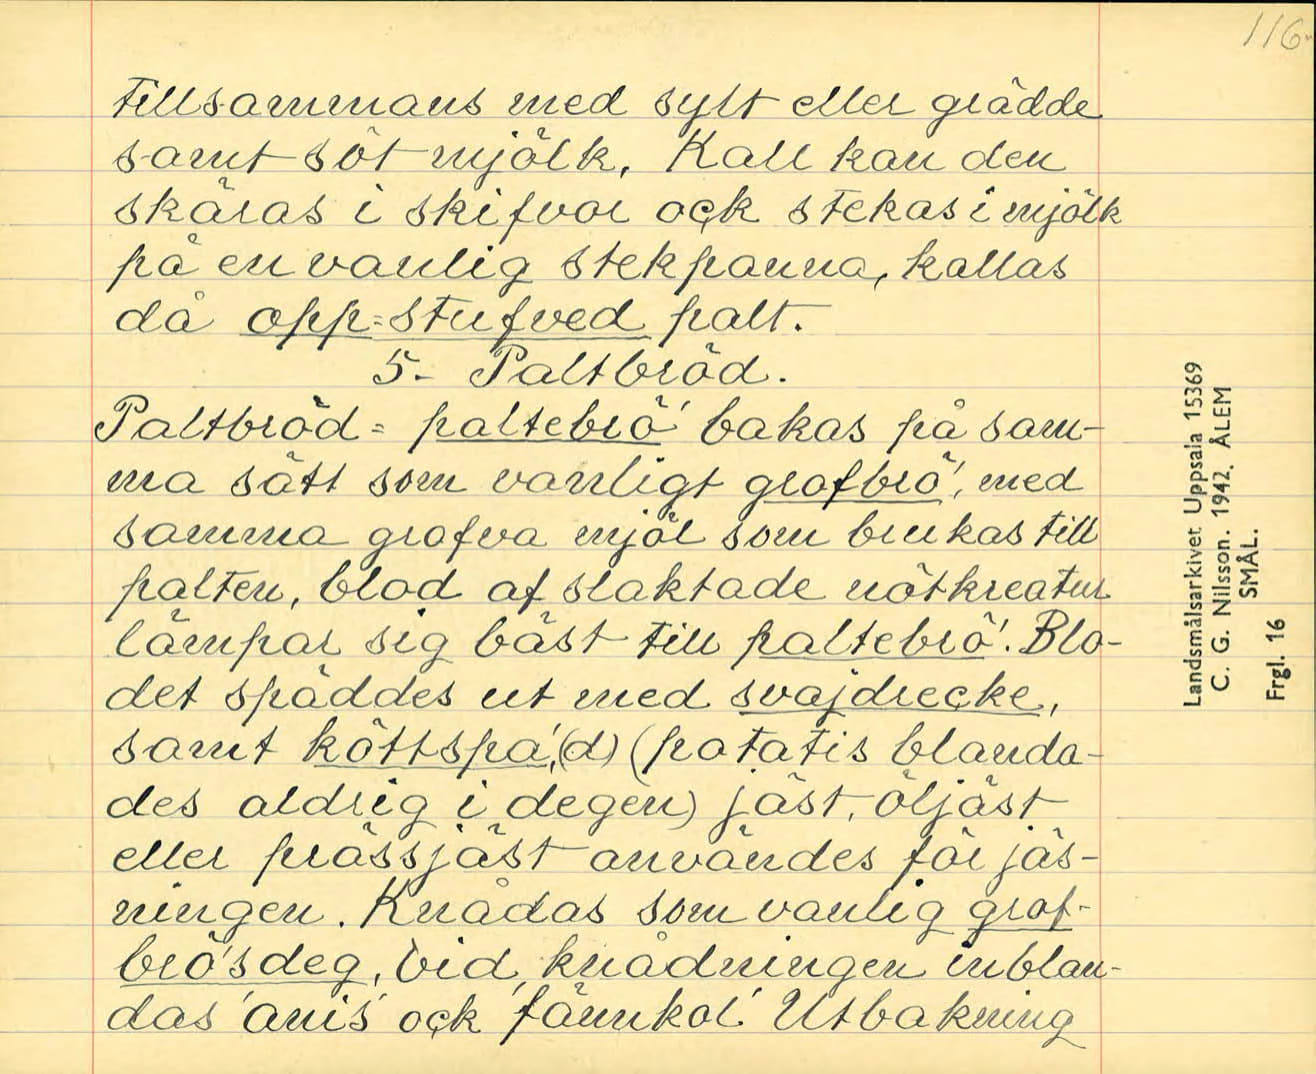 116.
tillsammans med sylt eller grädde
samt söt mjölk, Kall kan den
skäras i skifvor oçk stekas i mjölk
på en vanlig stekpanna, kallas
då opp=stufved palt.
5- Paltbröd.
Paltbröd = paltebrö' bakas på sam-
ma sätt som vanligt grofbrö', med
samma grofva mjöl som brukas till
palten, blod af slaktade nötkreatur
lämpar sig bäst till paltebrö'. Blo-
det späddes ut med svajdreçke,
samt köttspa',(d) (potatis blanda-
des aldrig i degen) jäst, öljäst
eller prässjäst användes för jäs-
ningen. Knådas som vanlig grof-
brö'sdeg, vid knådningen inblan-
das 'anis' oçk 'fännkol'. Utbakning
Landsmålsarkivet Uppsala 15369
C. G. Nilsson. 1942. ÅLEM
SMÅL.
Frgl. 16